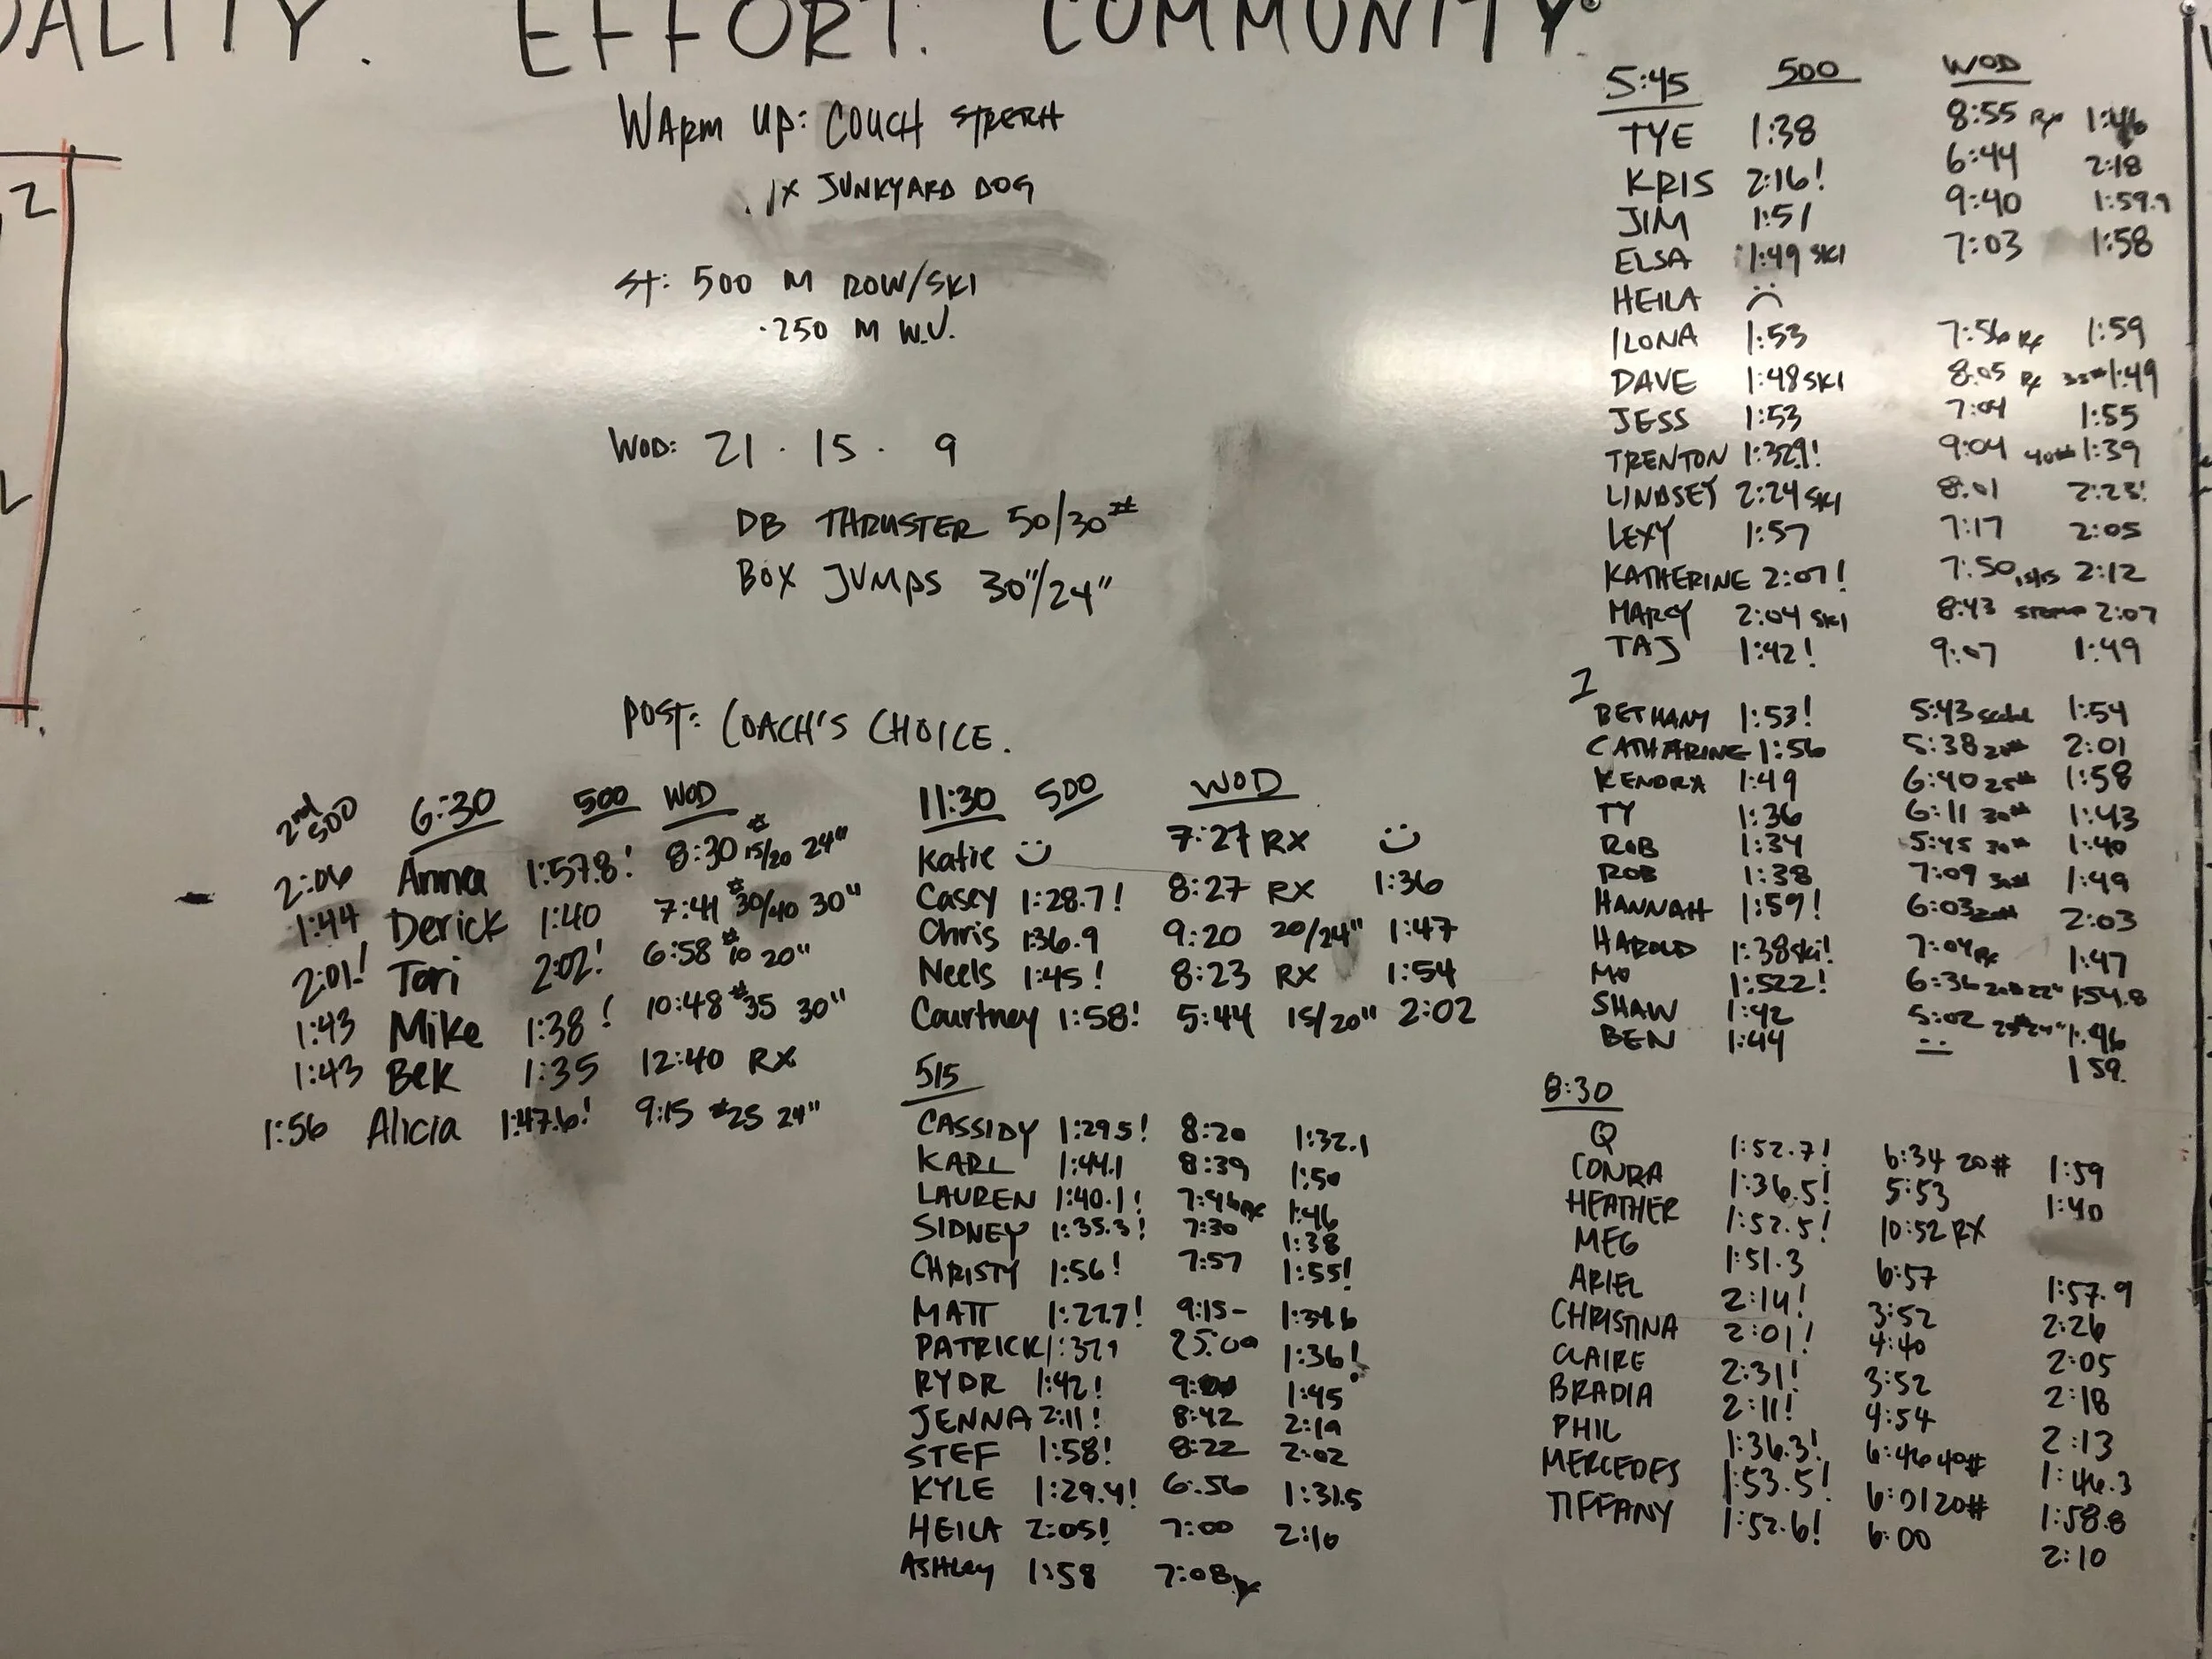 ALITY. EFFORT. COMMUNITY.
2
WARM UP: COUCH STRETCH
1X JUNKYARD DOG
ST: 500 M ROW/SKI
.250 M W.U.
WOD: 21 . 15 . 9
DB THRUSTER 50/30#
BOX JUMPS 30"/24"
POST: COACH'S CHOICE.
2nd 500 6:30 500 WOD
2:06 Anna 1:57.8! 8:30 #15/20 24"
1:44 Derick 1:40 7:41 #30/40 30"
2:01! Tori 2:02! 6:58 #10 20"
1:43 Mike 1:38! 10:48 #35 30"
1:43 Bek 1:35 12:40 RX
1:56 Alicia 1:47.6! 9:15 #25 24"
11:30 500 WOD
Katie 7:27 RX
Casey 1:28.7! 8:27 RX 1:36
Chris 1:36.9 9:20 20/24" 1:47
Neels 1:45! 8:23 RX 1:54
Courtney 1:58! 5:44 15/20" 2:02
515
CASSIDY 1:29.5! 8:20 1:32.1
KARL 1:44.1 8:39 1:50
LAUREN 1:40.1! 7:46 RX 1:46
SIDNEY 1:35.3! 7:30 1:38
CHRISTY 1:56! 7:57 1:55!
MATT 1:27.7! 9:15-
PATRICK 25:00 1:36!
RYDR 1:42! 1:45
JENNA 2:11! 8:42 2:19
STEF 1:58! 8:22 2:02
KYLE 1:29.4! 6:56 1:31.5
HEILA 2:05! 7:00 2:10
ASHLEY 1:58 7:08 RX
5:45 500 WOD
TYE 1:38 8:55 RX 1:46
KRIS 2:16! 6:44 2:18
JIM 1:51 9:40 1:59.9
ELSA 1:49 SKI 7:03 1:58
HEILA
ILONA 1:53 7:56 RX 1:59
DAVE 1:48 SKI 8:05 RX 35# 1:49
JESS 1:53 7:04 1:55
TRENTON 1:32.9! 9:04 40# 1:39
LINDSEY 2:24 SKI 8:01 2:23!
LEXY 1:57 7:17 2:05
KATHERINE 2:07! 7:50 2:12
MARCY 2:04 SKI 8:43 2:07
TAJ 1:42! 9:07 1:49
7
BETHANY 1:53! 5:43 1:54
CATHARINE 1:56 5:38 20# 2:01
KENDRA 1:49 6:40 25# 1:58
TY 1:36 6:11 30# 1:43
ROB 1:34 5:45 30# 1:40
ROB 1:38 7:09 1:49
HANNAH 1:59! 6:03 20# 2:03
HAROLD 1:38 SKI! 7:04 RX 1:47
MO 1:52.2! 6:36 20# 22" 1:54.8
SHAW 1:42 5:02 25# 24" 1:46
BEN 1:44 1:59.
8:30
Q 1:52.7! 6:34 20# 1:59
CONRA 1:36.5! 5:53 1:40
HEATHER 1:52.5! 10:52 RX
MEG 1:51.3 6:57 1:57.9
ARIEL 2:14! 3:52 2:26
CHRISTINA 2:01! 4:40 2:05
CLAIRE 2:31! 3:52 2:18
BRADIA 2:11! 4:54 2:13
PHIL 1:36.3! 6:46 40# 1:46.3
MERCEDES 1:53.5! 6:01 20# 1:58.8
TIFFANY 1:52.6! 6:00 2:10